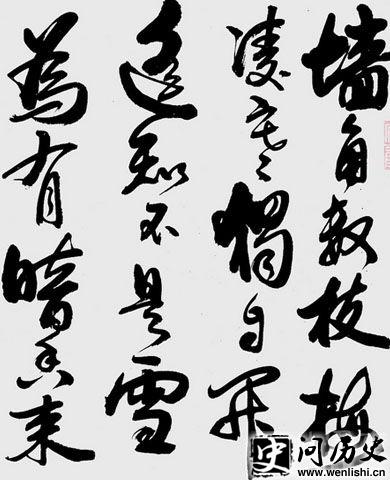 墙角数枝梅
凌寒獨自开
遥知不是雪
為有暗香来
史 问历史
www.wenlishi.cn